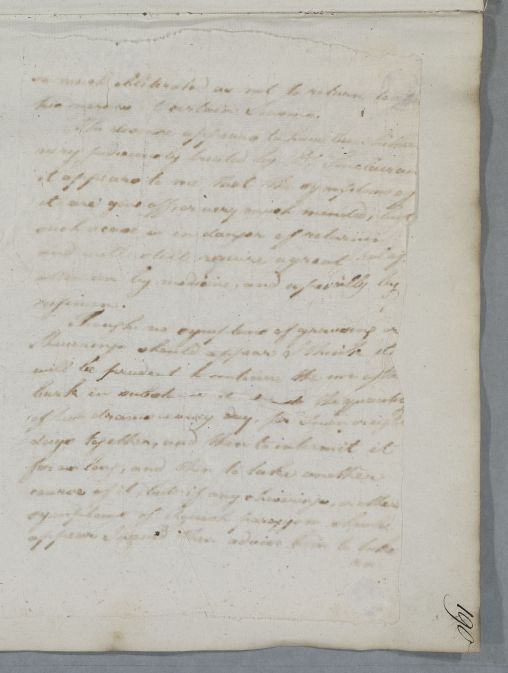 so much obliterated as not to return
The disease appears to have been hitherto
very judiciously treated by Dr Sinclair and
it appears to me that the symptoms of
it are gone off or very much mended; but
such a case is in danger of returning
and will still require a great deal of
attention by medicine, and especially by
regimen.
Though no symptoms of
Shiverings should appear I think it
will be prudent to continue the use of the
bark in substance to the quantity
of two drams every day, for seven or eight
days together, and then to intermit it
for as long, and then to take another
course of it, but if any shiverings, or other
symptoms of Aguish paroxysm should
appear I would then advise him to take
an
190